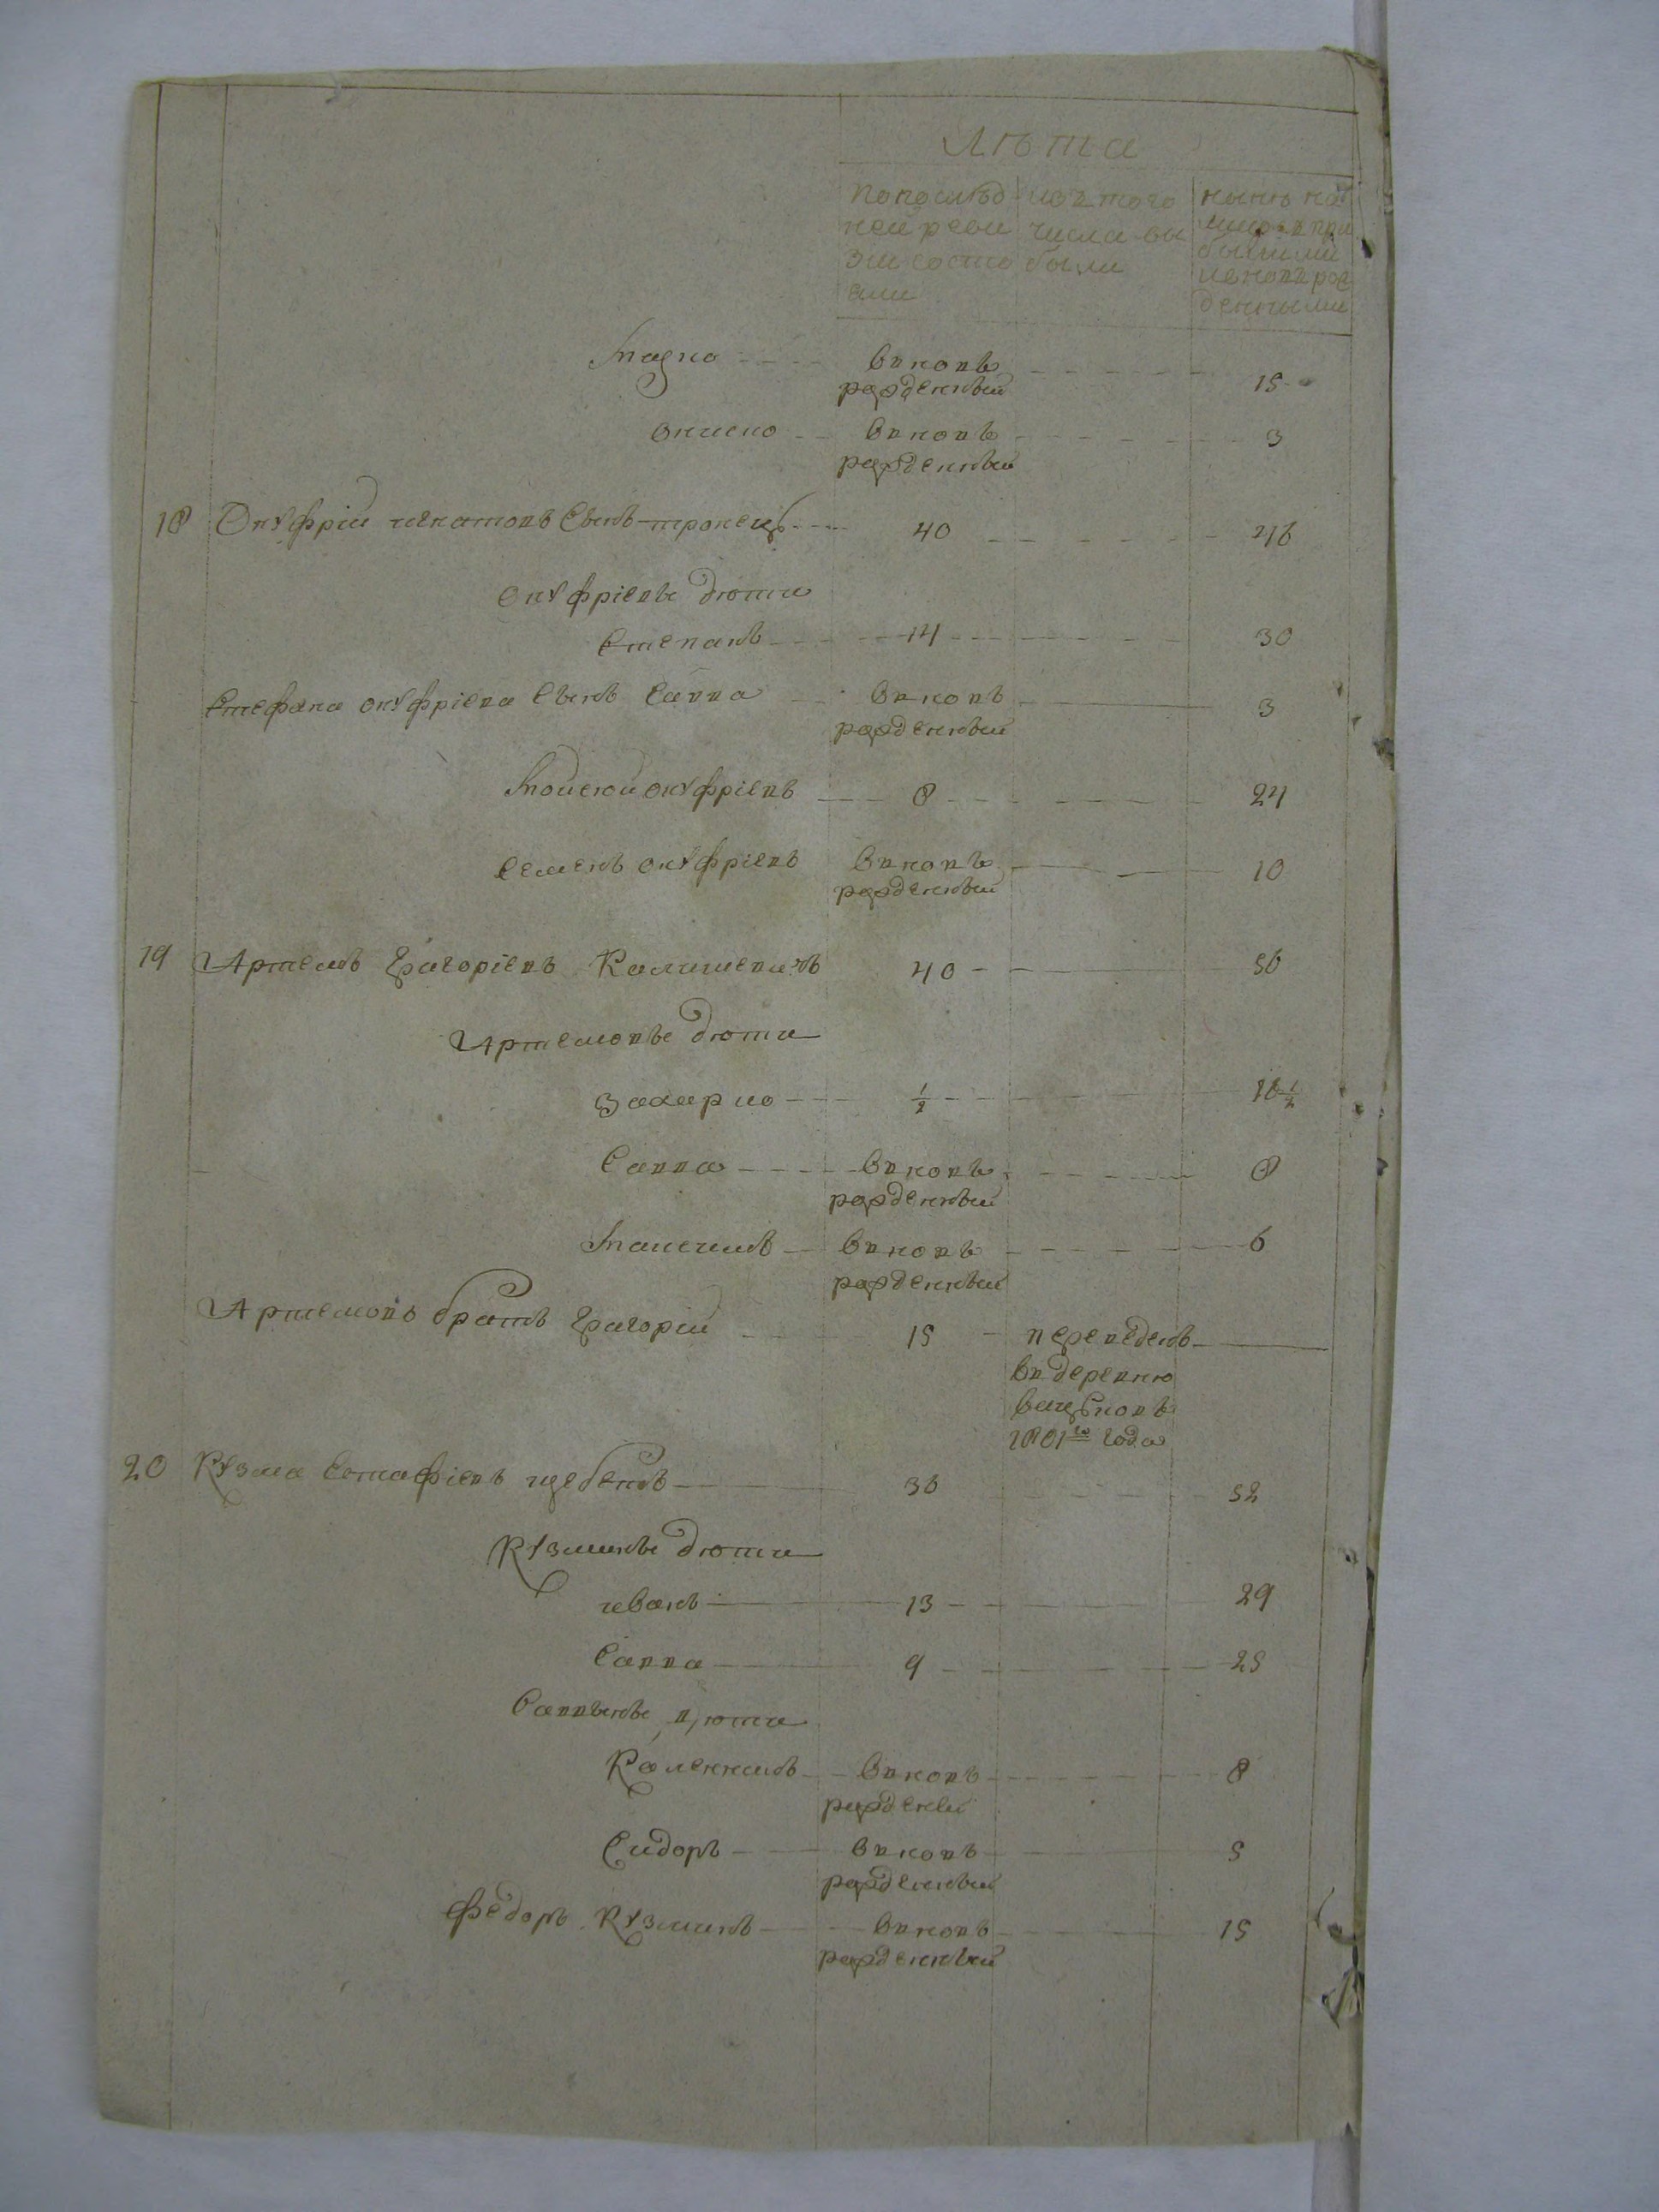 Лѣта
Попослѣд
ней реви
зи состо
яли
изтого
числа вы
были
нынѣ на
лицо съ при
былыми
иновь рож
денными
вновь
рожденный
15
вновь
рожденный
3
18 Онуфрій игнатовъ Сынъ
40
46
Онуфріевы дѣти
Степанъ
14
30
Стефана онуфріева Сынъ Савва
вновь
рожденный
3
Моисей онуфріевъ
8
24
Семенъ онуфріевъ
вновь
рожденный
10
19 Артемъ Григоріевъ
40
56
Артемовы дѣти
Захарко
1/2
16 1/2
Савва
вновь
рожденный
8
Максимъ
вновь
рожденный
6
Артемовъ братъ Григорій
15
переведенъ
вдеревню
1801го года
20 Кузма Остафіевъ
36
52
Кузмины дѣти
иванъ
13
29
Савва
9
25
Саввины дѣти
Калинникъ
вновь
рожденый
8
Сидоръ
вновь
рожденный
5
Федоръ Кузминъ
вновь
рожденный
15